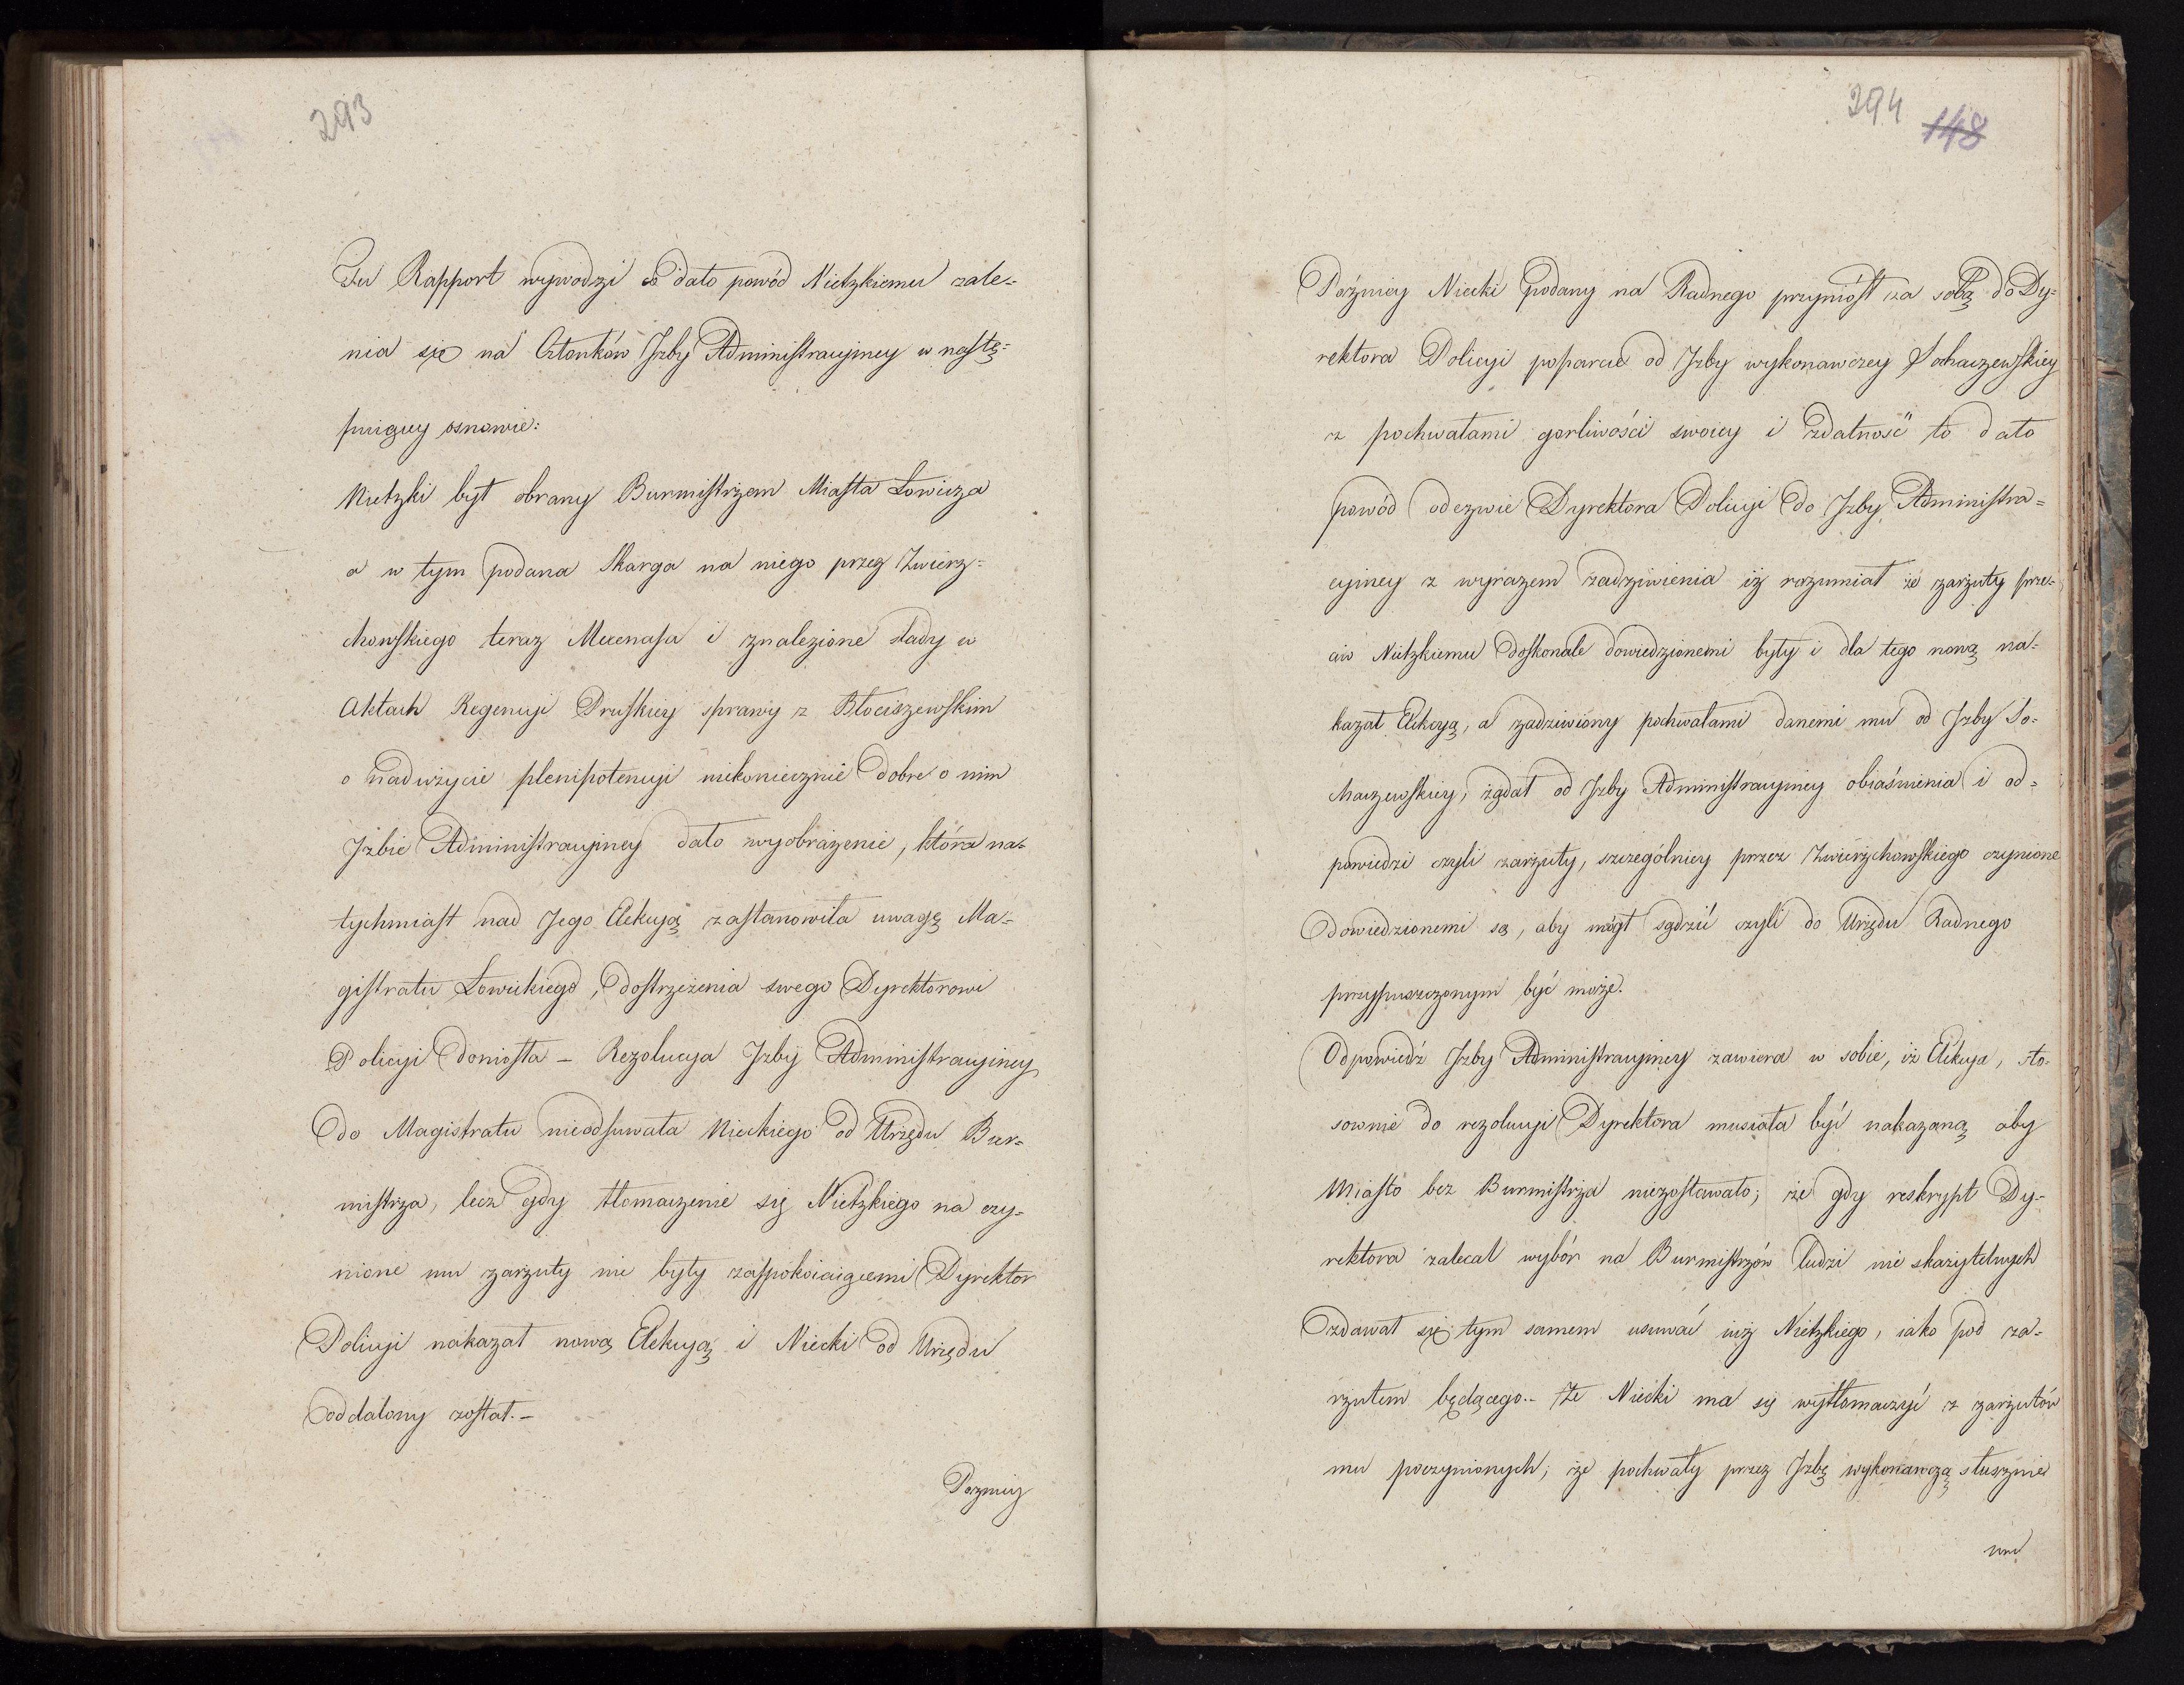 293
Tu Rapport wywodzi co dało powód Nietzkiemu żale-
nia się na Członków Izby Administracyiney w nastę-
puiącey osnowie:
Nietzki był obrany Burmistrzem Miasta Łowicza
a w tym podana Skarga na niego przez Zwierz-
chowskiego teraz Mecenasa i znalezione slady w
Aktach Regencyi Pruskiey sprawy z Błociszewskim
o nadużycie plenipotencyi niekoniecznie dobre o nim
Izbie Administracyiney dało wyobrażenie, która na-
tychmiast nad Jego Elekcyą zastanowiła uwagę Ma-
gistratu Łowickiego, dostrzeżenia swego Dyrektorowi
Policyi doniosła – Rezolucya Izby Administracyiney
do Magistratu nieodsuwała Nieckiego od Urzędu Bur-
mistrza, lecz gdy tłomaczenie się Nietzkiego na czy-
nione mu zarzuty nie były zaspokoiaiącemi Dyrektor
Policyi nakazał nową Elekcyą i Niecki od Urzędu
oddalony został. –
Pozniey
294
148
Poźniey Niecki podany na Radnego przyniósł za sobą do Dy-
rektora Policyi poparcie od Izby wykonawczey Sochaczewskiey
z pochwałami gorliwości swoiey i zdatność to dało
powód odezwie Dyrektora Policyi do Izby Administra-
cyiney z wyrazem zadziwienia iż rozumiał że zarzuty prze-
ciw Nietzkiemu doskonale dowiedzionemi były i dla tego nową na-
kazał Elekcyą, a zadziwiony pochwałami danemi mu od Izby So-
chaczewskiey, żądał od Izby Administracyiney obiaśnienia i od-
powiedzi czyli zarzuty, szczególniey przez Zwierzchowskiego czynione
dowiedzionemi są, aby mógł sądzić czyli do Urzędu Radnego
przypuszczonym być może.
Odpowiedź Izby Administracyiney zawiera w sobie, iż Elekcya, sto-
sownie do rezolucyi Dyrektora musiała być nakazaną aby
Miasto bez Burmistrza niezostawało; że gdy reskrypt Dy-
rektora zalecał wybór na Burmistrzów ludzi nie skazytelnych
zdawał się tym samem usuwać iuż Nietzkiego, iako pod za-
rzutem będącego. – Że Niecki ma się wytłomaczyć z zarzutów
mu poczynionych; że pochwały przez Izbę wykonawczą słusznie
mu